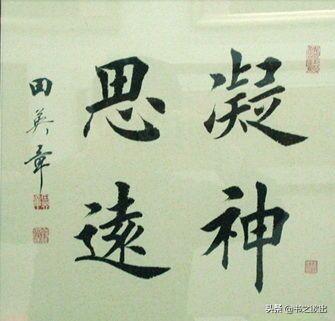 凝神
思遠
田英章
头条 @书之欲出